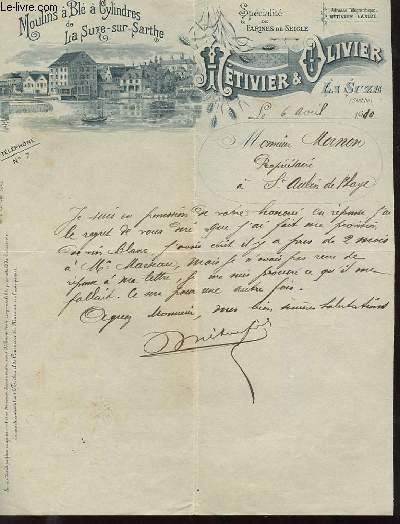 Moulins à Blé à Cylindres
de
La Suze-sur-Sarthe
Spécialité
DE
FARINES DE SEIGLE
Adresse Télégraphique:
MÉTIVIER LA SUZE
MÉTIVIER & OLIVIER
LA SUZE
(SARTHE)
TÉLÉPHONE
No 7
Le 6 avril 1910
Monsieur
Propriétaire
à St Aubin de Blaye
Je suis en possession de votre honoré, en réponse j'ai
le regret de vous dire que j'ai fait ma provision
de vin blanc, j'avais écrit il y a près de 2 mois
à Mr mais je n'avais pas reçu de
réponse à ma lettre je me suis procuré ce qu'il me
fallait. Ce sera pour une autre fois.
Agréez Monsieur, mes bien sincères salutations